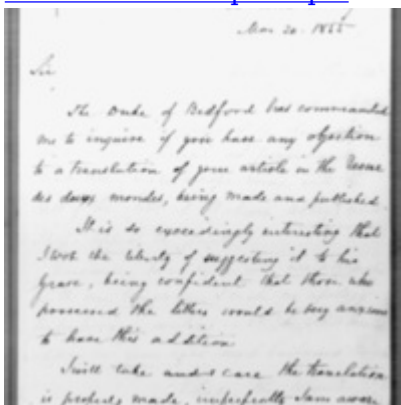 Sir
The Duke of Bedford has commanded
me to inquire if you have any objection
to a translation of your article in the Revue
des deux mondes, being made and published.
It is so exceedingly interesting that
I took the liberty of suggesting it to his
Grace, being confident that those who
possessed the letters would be very anxious
to have this addition
I will take care the translation
is properly made, imperfectly I am aware